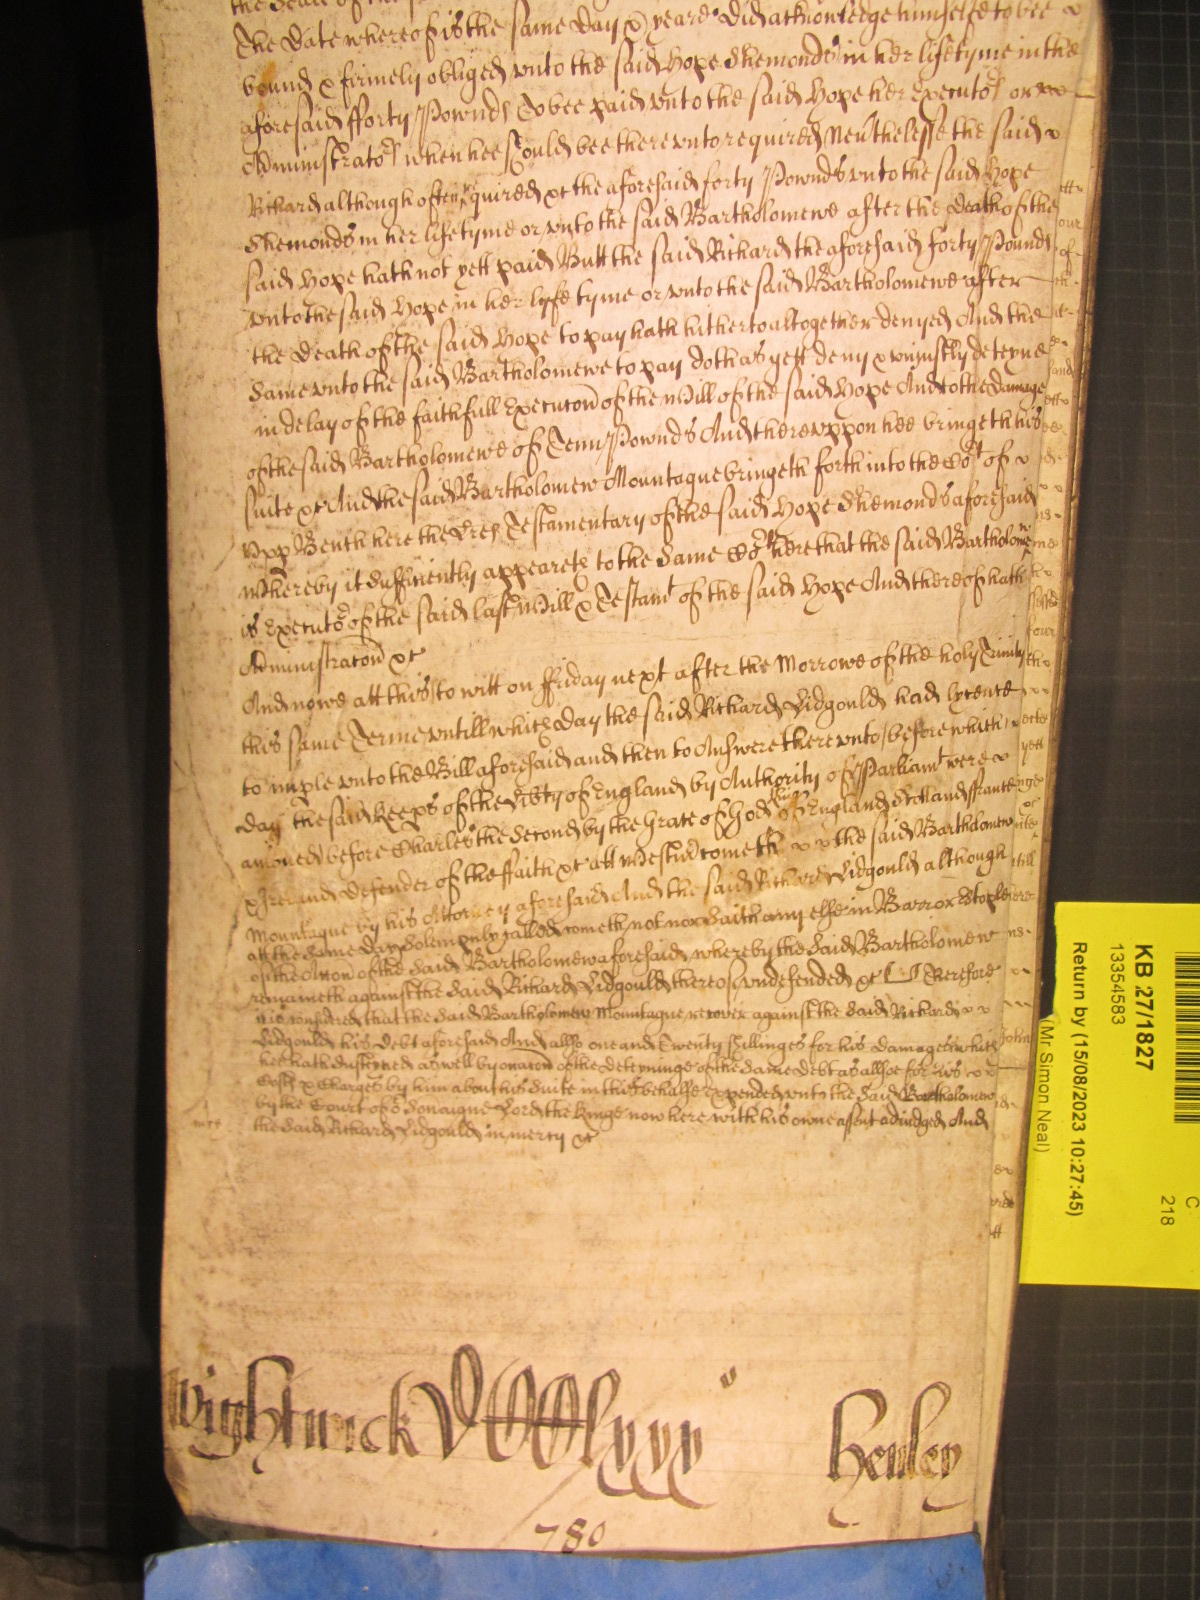 the Date whereof is the same day & yeare did acknowledge himselfe to bee
bound & firmely obliged unto the said Hope Shemonds in her lifetyme in the
aforesaid fforty Pownds To bee paid unto the said Hope her Executors or
Administrators when hee should bee thereunto required Nev'thelesse the said
Richard although often required &c the aforesaid forty Pownds unto the said Hope
Shemonds in her lifetyme or unto the said Bartholomewe after the death of the
said Hope hath not yett paid Butt the said Richard the aforesaid forty Pownds
unto the said Hope in her lyfe tyme or unto the said Bartholomewe after
the death of the said Hope to pay hath hitherto altogether denyed And the
same unto the said Bartholomewe to pay doth as yett deny & uniustly deteyne
in delay of the faithfull Execucon of the Will of the said Hope And to the damage
of the said Bartholomewe of Tenn Pownds And thereuppon hee bringeth his
suite &c And the said Bartholomew Mountague bringeth forth into the Co't of
Upp Bench here the Lres Testamentary of the said Hope Shemonds aforesaid
Whereby it sufficiently appeareth to the same Co't here that the said Bartholomew
is Executor of the said last Will & Testam't of the said Hope And thereof hath
Administracon &c
And nowe att this to witt on ffriday next after the Morrowe of the holy Trinity
this same Terme untill which day the said Richard Lidgould had lycence
to imple unto the Bill aforesaid and then to Answere thereunto before which
day the said Keep's of the Lib'ty of England by Authority of Parliam't were
amoved before Charles the Second by the Grace of God King of England Scotland ffrance
& Ireland Defender of the ffaith &c att Westm' cometh the said Bartholomew
Mountague by his Attorney aforesaid And the said Richard Lidgould although
att the same day solempnly called cometh not nor saith any else in Barr or Stopple
of the Accon of the said Bartholomew aforesaid whereby the said Bartholomew
remaineth against the said Richard Lidgould thereof undefended &c Therefore
it is considered that the said Bartholomew Mountague recover against the said Richard
Lidgould his Debt aforesaid And allso one and Twenty shillinges for his damages which
hee hath susteyned as well by occacon of the deteyninge of the same debt as allsoe for his
Costs & Charges by him about his suite in this behalfe expended unto the said Bartholomew
by the Court of o' Soveraigne Lord the Kinge now here with his owne assent adiudged And
the said Richard Lidgould in mercy &c
Wightwick
Henley
780
KB 27/1827
13354583
Return by (15/08/2023 10:27:45)
(Mr. Simon Neal)
C
218